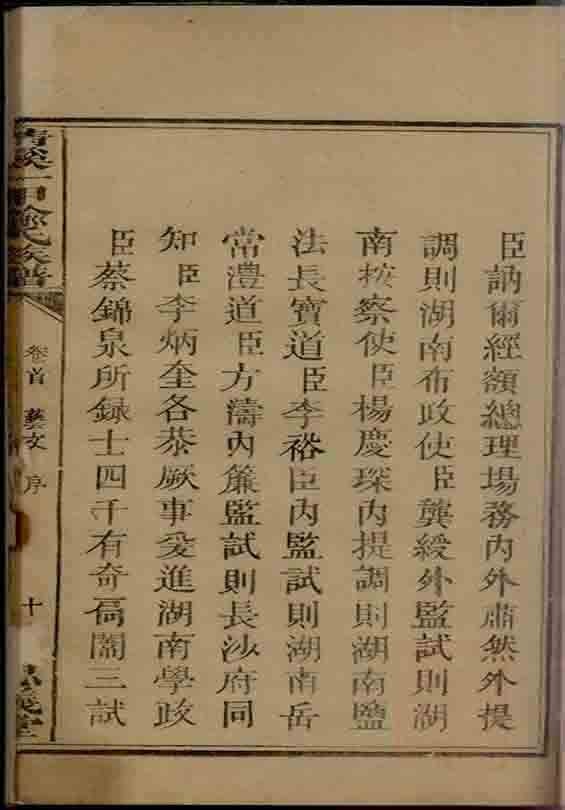 臣訥爾經額總理場務内外肅然外提
調則湖南布政使臣龔綬外監試則湖
南按察使臣楊慶琛内提調則湖南鹽
法長寶道臣李裕臣内監試則湖南岳
常澧道臣方濤内簾監試則長沙府同
知臣李炳奎各恭厥事爰進湖南學政
臣蔡錦泉所録士四千有奇扄闈三試
一甲余氏族譜
卷首 藝文 序
十